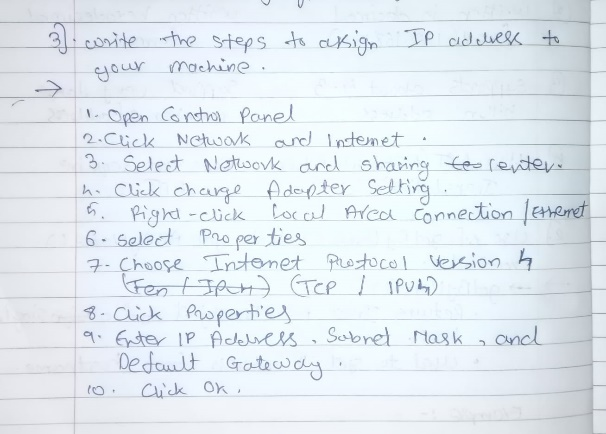 3]. write the steps to assign IP address to
your machine.
→
1. Open Control Panel
2. Click Network and Internet.
3. Select Network and sharing center.
4. Click change Adapter Setting.
5. Right-click Local Area Connection / Ethernet
6. Select Properties
7. Choose Internet Protocol Version 4
(TCP / IPv4)
8. Click Properties
9. Enter IP Address, Subnet Mask, and
Default Gateway.
10. Click OK.